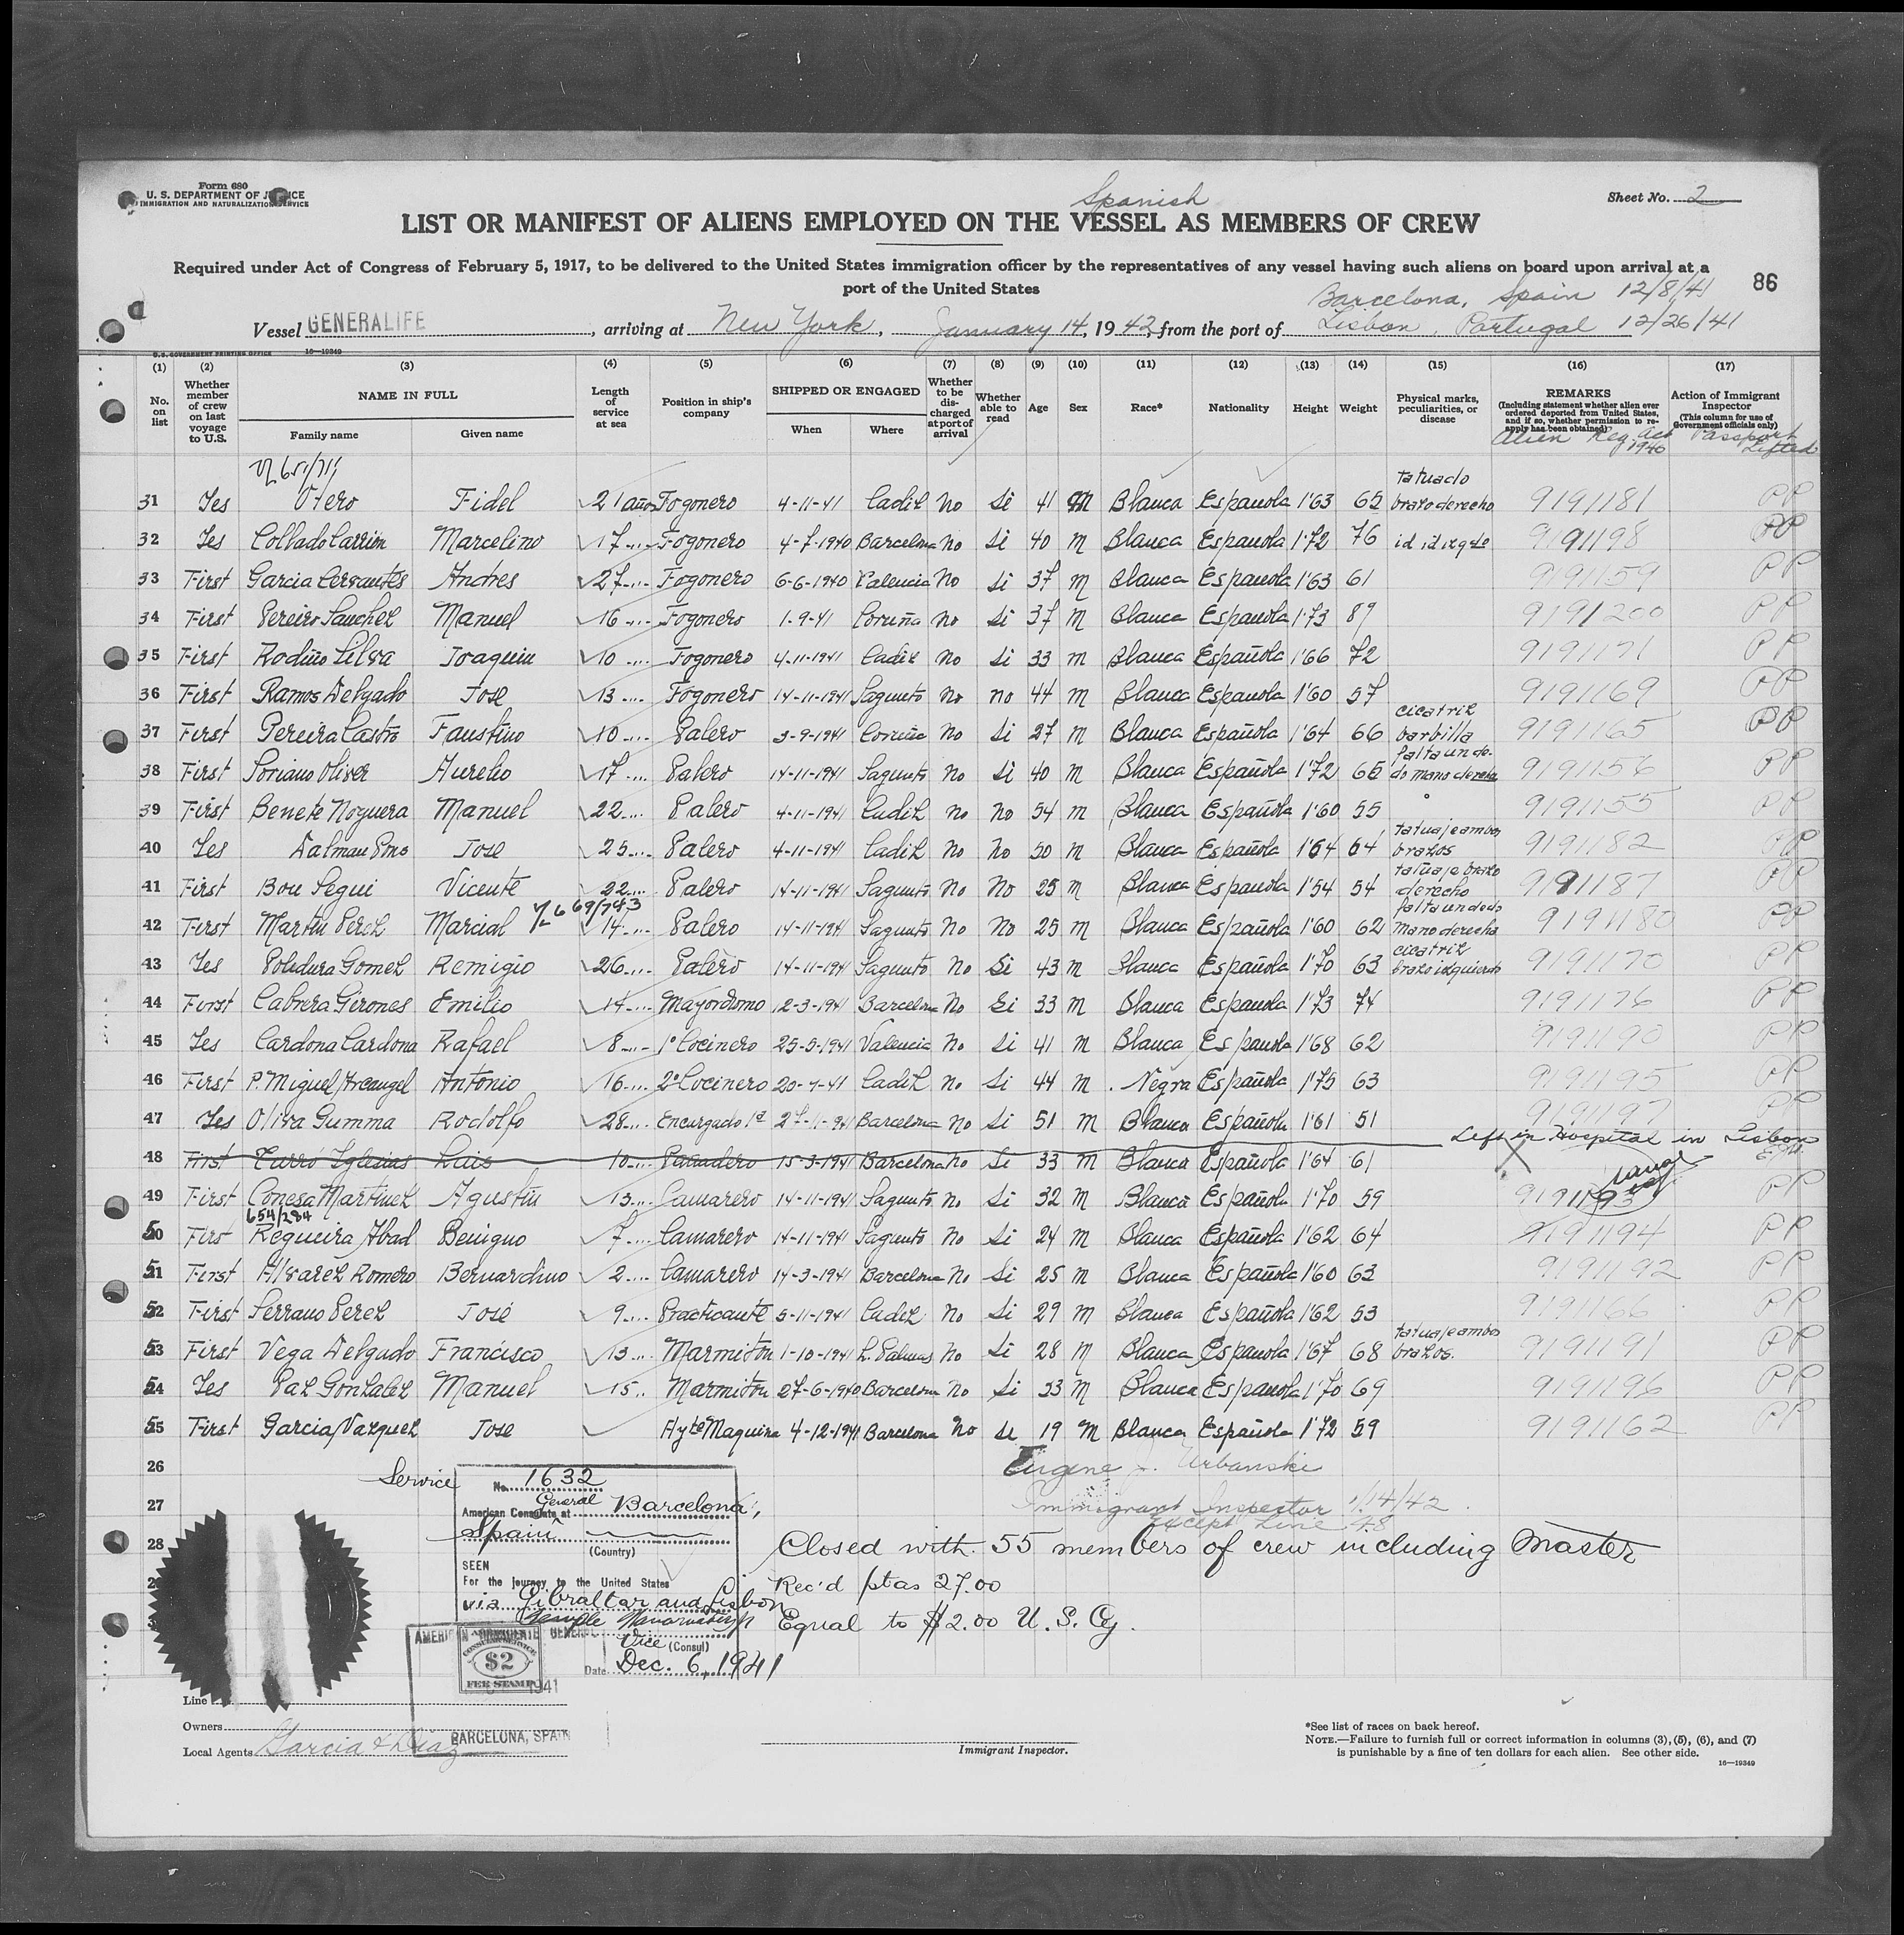 Form 680
U. S. DEPARTMENT OF JUSTICE
IMMIGRATION AND NATURALIZATION SERVICE
Spanish
Sheet No. 2
LIST OR MANIFEST OF ALIENS EMPLOYED ON THE VESSEL AS MEMBERS OF CREW
Required under Act of Congress of February 5, 1917, to be delivered to the United States immigration officer by the representatives of any vessel having such aliens on board upon arrival at a
port of the United States
86
Barcelona, Spain 12/8/41
Vessel GENERALIFE, arriving at New York, January 14, 1942, from the port of Lisbon, Portugal 12/26/41
U.S. GOVERNMENT PRINTING OFFICE 16—19349
(1) (2) (3) (4) (5) (6) (7) (8) (9) (10) (11) (12) (13) (14) (15) (16) (17)
No. on list
Whether member of crew on last voyage to U.S.
NAME IN FULL
Family name
Given name
Length of service at sea
Position in ship's company
SHIPPED OR ENGAGED
When
Where
Whether to be discharged at port of arrival
Whether able to read
Age
Sex
Race*
Nationality
Height
Weight
Physical marks, peculiarities, or disease
REMARKS
(Including statement whether alien ever ordered deported from United States, and if so, whether permission to reapply has been obtained)
Alien Reg. Act 1940
Action of Immigrant Inspector
(This column for use of Government officials only)
Passport Lifted
31 Yes Otero Fidel 21 años Fogonero 4-11-41 Cadiz No Si 41 M Blanca Española 1'63 65 tatuado brazo derecho 9191181 PP
32 Yes Collado Carrion Marcelino 17 Fogonero 4-7-1940 Barcelona No Si 40 M Blanca Española 1'72 76 id id izqdo 9191198 PP
33 First Garcia Cervantes Andres 27 Fogonero 6-6-1940 Valencia No Si 37 M Blanca Española 1'63 61 9191159 PP
34 First Pereiro Sanchez Manuel 16 Fogonero 1-9-41 Coruña No Si 37 M Blanca Española 1'73 89 9191200 PP
35 First Rodiño Silva Joaquin 10 Fogonero 4-11-1941 Cadiz No Si 33 M Blanca Española 1'66 72 9191171 PP
36 First Ramos Delgado Jose 13 Fogonero 14-11-1941 Sagunto No no 44 M Blanca Española 1'60 57 9191169 PP
37 First Pereira Castro Faustino 10 Palero 3-9-1941 Coruña No Si 27 M Blanca Española 1'64 66 cicatriz barbilla 9191165 PP
38 First Soriano Oliver Aurelio 17 Palero 14-11-1941 Sagunto No Si 40 M Blanca Española 1'72 65 falta un dedo mano derecha 9191156 PP
39 First Benete Noguera Manuel 22 Palero 4-11-1941 Cadiz No No 54 M Blanca Española 1'60 55 9191155 PP
40 Yes Dalmau Pons Jose 25 Palero 4-11-1941 Cadiz No No 50 M Blanca Española 1'64 64 tatuaje ambos brazos 9191182 PP
41 First Bou Segui Vicente 22 Palero 14-11-1941 Sagunto No No 25 M Blanca Española 1'54 54 tatuaje brazo derecho 9191187 PP
42 First Martin Perez Marcial 14 Palero 14-11-1941 Sagunto No No 25 M Blanca Española 1'60 62 falta un dedo Mano derecha 9191180 PP
43 Yes Poledura Gomez Remigio 26 Palero 14-11-1941 Sagunto No Si 43 M Blanca Española 1'70 63 cicatriz brazo izquierdo 9191170 PP
44 First Cabrera Girones Emilio 14 Mayordomo 12-3-1941 Barcelona No Si 33 M Blanca Española 1'73 74 9191176 PP
45 Yes Cardona Cardona Rafael 8 1º Cocinero 25-5-1941 Valencia No Si 41 M Blanca Española 1'68 62 9191190 PP
46 First P. Miguel Arcangel Antonio 16 2º Cocinero 20-7-41 Cadiz No Si 44 M Negra Española 1'75 63 9191195 PP
47 Yes Oliva Gumma Rodolfo 28 Encargado 1ª 27-11-941 Barcelona No Si 51 M Blanca Española 1'61 51 9191197 PP
48 First Turró Iglesias Luis 10 Panadero 15-3-1941 Barcelona No Si 33 M Blanca Española 1'64 61 Left in Hospital in Lisbon
49 First Conesa Martinez Agustin 13 Camarero 14-11-1941 Sagunto No Si 32 M Blanca Española 1'70 59 9191193 PP
654/284
50 First Regueira Abad Benigno 7 Camarero 14-11-1941 Sagunto No Si 24 M Blanca Española 1'62 64 9191194 PP
51 First Alvarez Romero Bernardino 2 Camarero 14-3-1941 Barcelona No Si 25 M Blanca Española 1'60 63 9191192 PP
52 First Serrano Perez José 9 Practicante 5-11-1941 Cadiz No Si 29 M Blanca Española 1'62 53 9191166 PP
53 First Vega Delgado Francisco 13 Marmiton 1-10-1941 L. Palmas No Si 28 M Blanca Española 1'67 68 tatuaje ambos brazos. 9191191 PP
54 Yes Paz Gonzalez Manuel 15 Marmiton 27-6-1940 Barcelona No Si 33 M Blanca Española 1'70 69 9191196 PP
55 First Garcia Vazquez Jose Ayte Maquina 4-12-1941 Barcelona No Si 19 M Blanca Española 1'72 59 9191162 PP
26 Eugene J. Urbanski
27 Immigrant Inspector 1/14/42
Except Line 48
28 Closed with 55 members of crew including Master
Rec'd ptas 27.00
Equal to $2.00 U. S. Cy.
Service No. 1632
American Consulate General at Barcelona,
Spain
(Country)
SEEN
For the journey to the United States
via Gibraltar and Lisbon
Vice (Consul)
Date Dec. 6, 1941
AMERICAN CONSULATE GENERAL
CONSULAR SERVICE
$2
FEE STAMP
1941
BARCELONA, SPAIN
Line
Owners
Local Agents Garcia & Diaz
Immigrant Inspector.
*See list of races on back hereof.
NOTE.—Failure to furnish full or correct information in columns (3), (5), (6), and (7)
is punishable by a fine of ten dollars for each alien. See other side.
16—19349